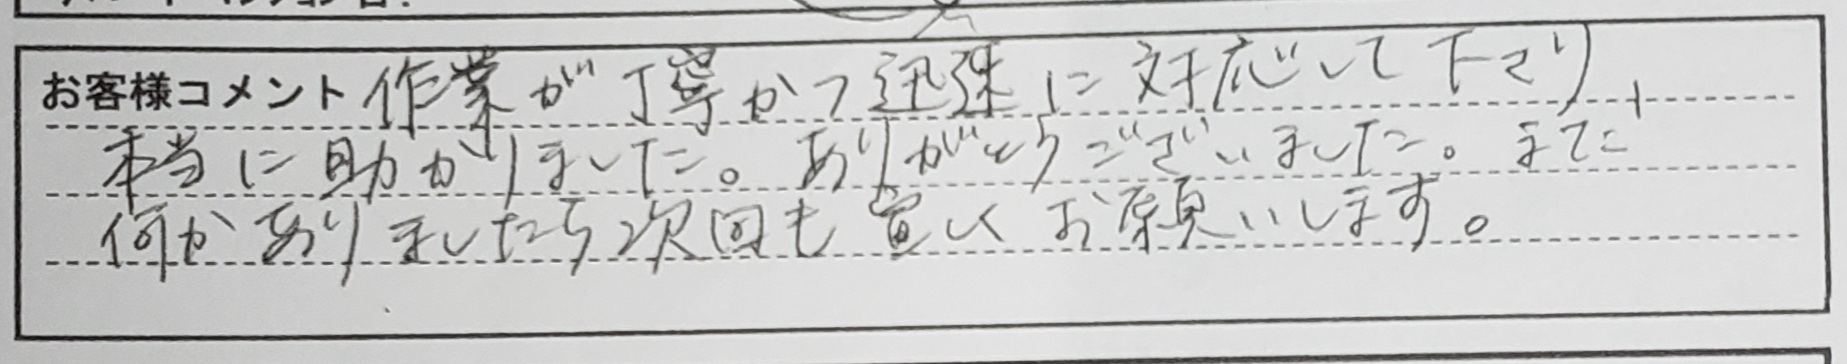 お客様コメント 作業が丁寧かつ迅速に対応して下さり、
本当に助かりました。ありがとうございました。また
何かありましたら次回も宜しくお願いします。